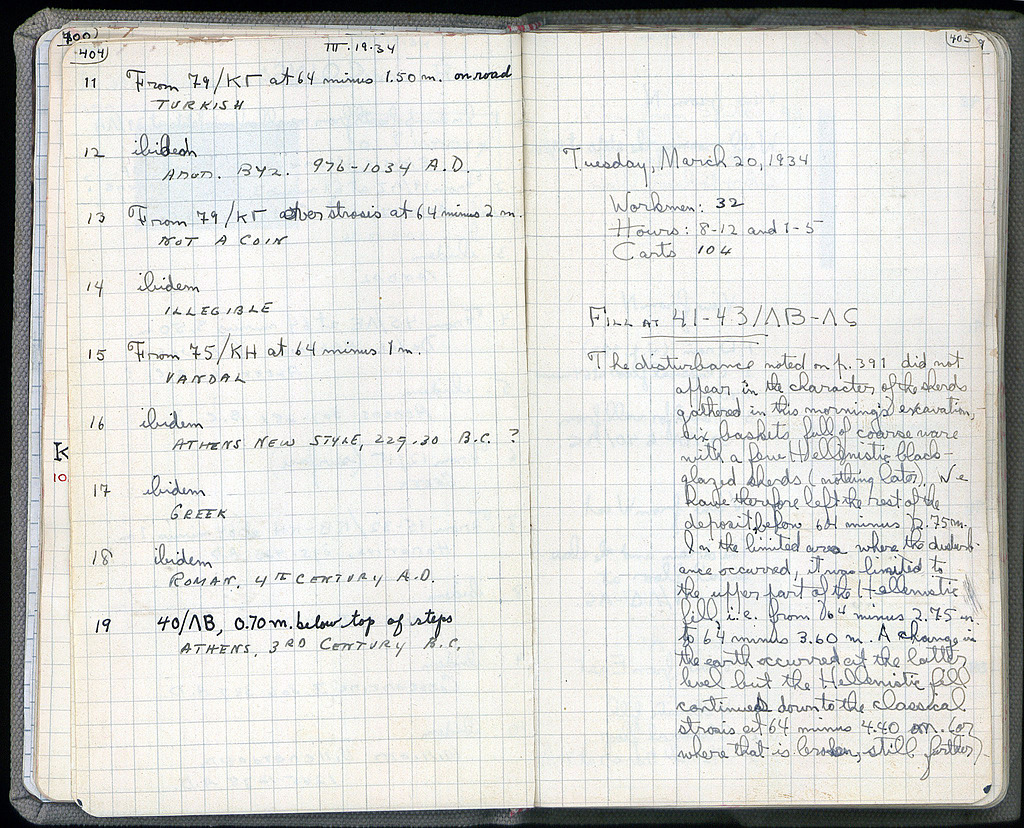 400
404
III.19.34
11 From 79/ΚΓ at 64 minus 1.50 m. on road
TURKISH
12 ibidem
ANON. BYZ. 976-1034 A.D.
13 From 79/ΚΓ over strosis at 64 minus 2 m.
NOT A COIN
14 ibidem
ILLEGIBLE
15 From 75/ΚΗ at 64 minus 1 m.
VANDAL
16 ibidem
ATHENS NEW STYLE, 229.30 B.C. ?
K
10
17 ibidem
GREEK
18 ibidem
ROMAN, 4TH CENTURY A.D.
19 40/ΛΒ, 0.70 m. below top of steps
ATHENS, 3RD CENTURY B.C.
405
9
Tuesday, March 20, 1934
Workmen: 32
Hours: 8-12 and 1-5
Carts 104
FILL AT 41-43/ΛΒ-ΛS
The disturbance noted on p. 391 did not
appear in the character of the sherds
gathered in this morning's excavation,
six baskets full of coarse ware
with a few Hellenistic black-
glazed sherds (nothing later). We
have therefore left the rest of the
deposit below 64 minus 2.75 m.
In the limited area where the disturb-
ance occurred, it was limited to
the upper part of the Hellenistic
fill, i.e. from 64 minus 2.75 m.
to 64 minus 3.60 m. A change in
the earth occurred at the latter
level but the Hellenistic fill
continued down to the classical
strosis at 64 minus 4.40 m. (or
where that is broken, still further)